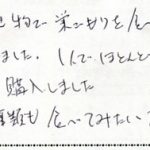 物で栗こもりを食べ
ました。1人でほとんど
購入しました
種類も食べてみたい